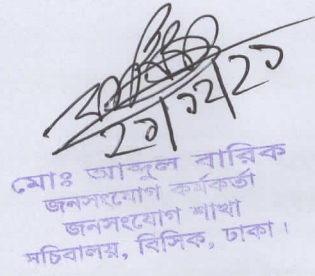 ২১/১২/২১
মোঃ আব্দুল বারিক
জনসংযোগ কর্মকর্তা
জনসংযোগ শাখা
সচিবালয়, বিসিক, ঢাকা।